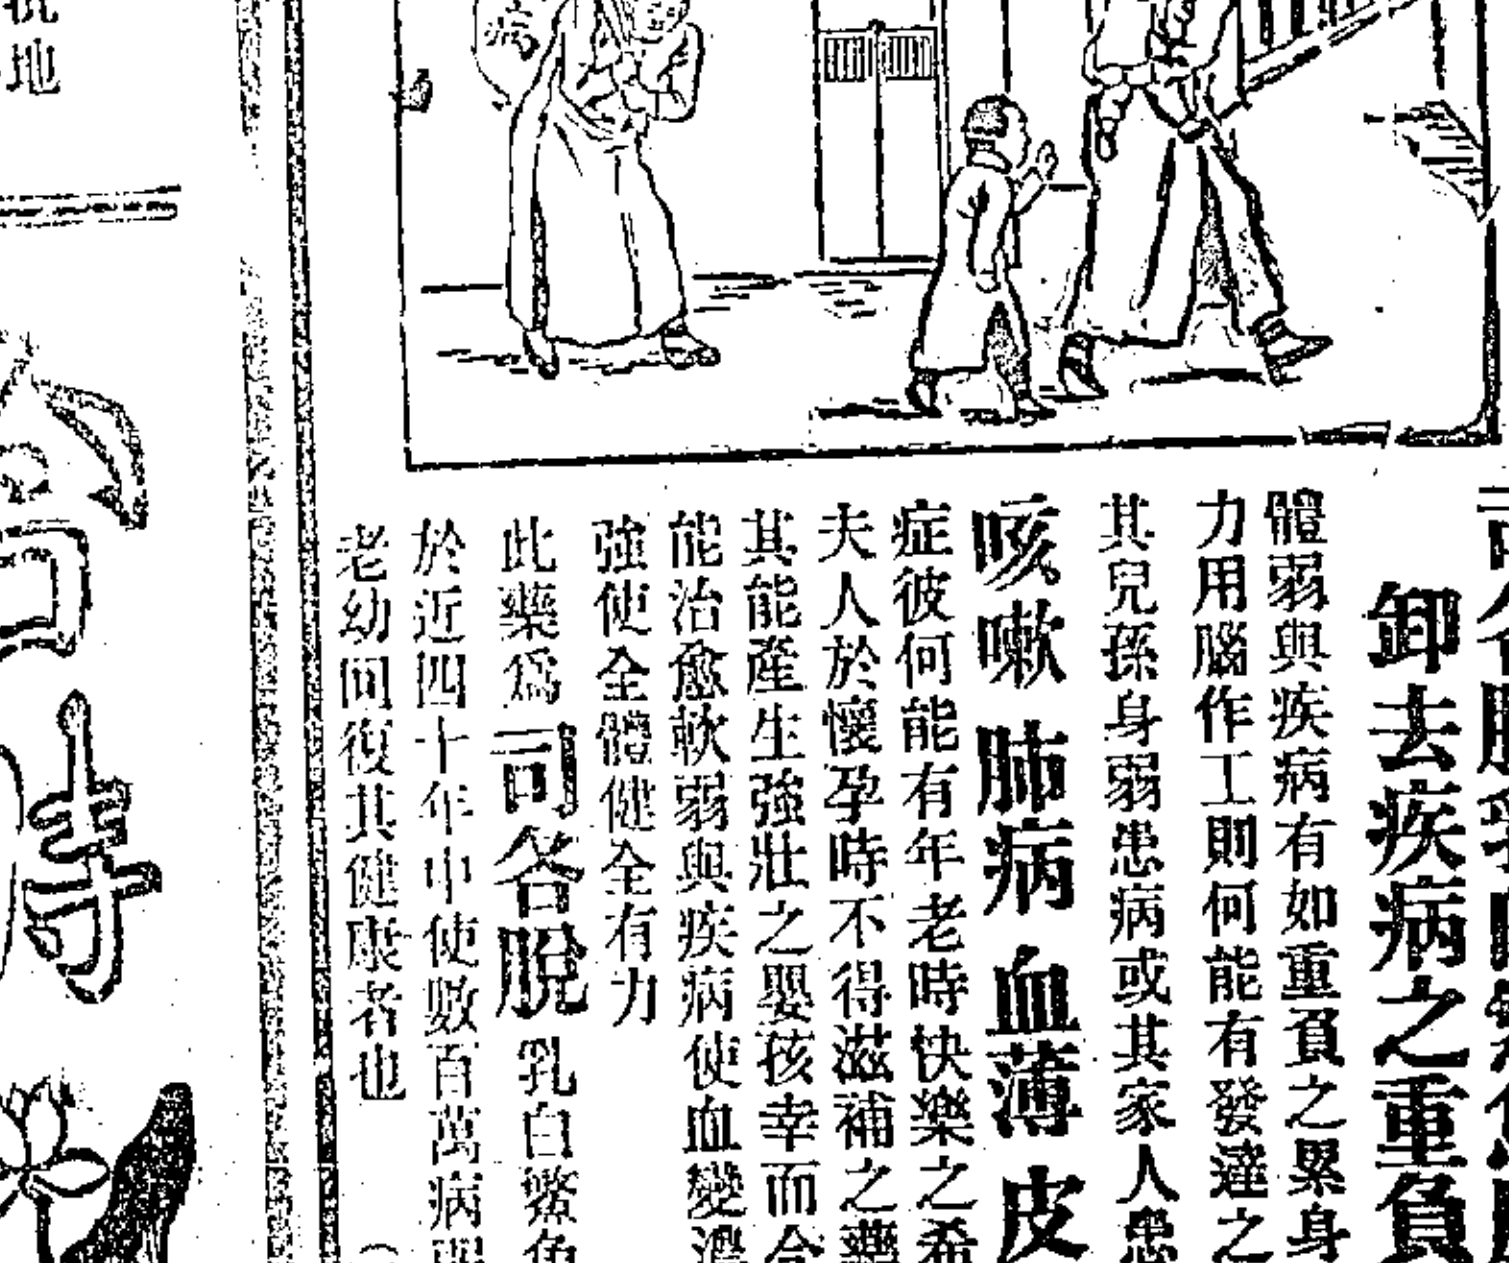 卸去疾病之重負
體弱與疾病有如重負之累身
力用腦作工則何能有發達之
其兒孫身弱患病或其家人患
咳嗽 肺病 血薄 皮
症彼何能有年老時快樂之希
夫人於懷孕時不得滋補之藥
其能產生強壯之嬰孩幸而合
能治愈軟弱與疾病使血變濃
強使全體健全有力
此藥爲司各脫乳白鰵魚
於近四十年中使數百萬病
老幼回復其健康者也
病
地